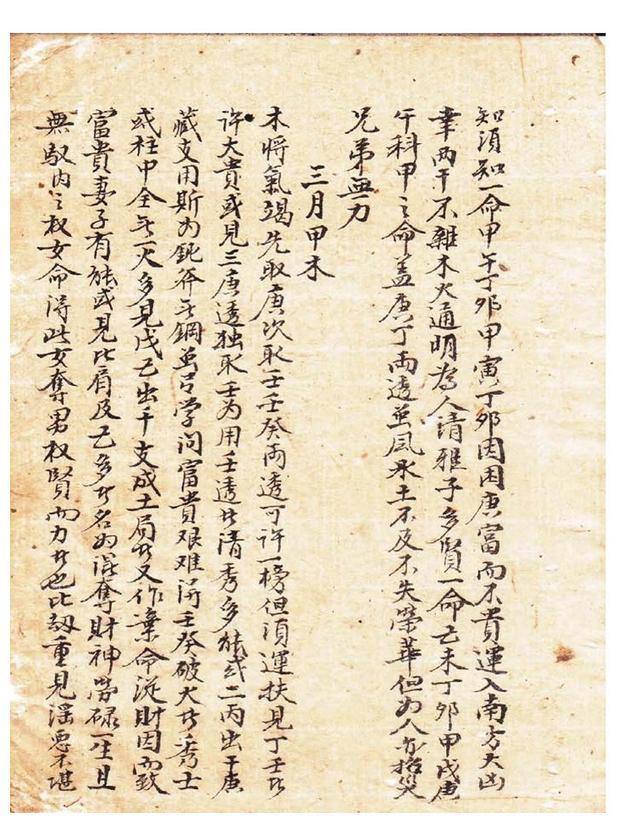 知須知一命甲午丁卯甲寅丁卯因困庚富而不貴運入南方大凶
幸両干不雑木火通明為人清雅子多賢一命乙未丁卯甲戌庚
午科甲之命盖庚丁両透虽風水土不及不失榮華但为人亦招災
兄弟無力
三月甲木
木將氣竭先取庚次取壬壬癸両透可許一榜但須運扶見丁壬
许大貴或見三庚透独取壬为用壬透清秀多能或二丙出干庚
藏支用斯为鈍斧无鋼虽学問富貴艰难得壬癸破火秀士
或柱中全无一火多見戊己出干支成土局又作棄命従財因而致
富貴妻子有能或見比肩及乙多名为混奪財神勞碌一生且
無馭内之权女命得此女奪男权賢而力也比劫重見滛惡不堪